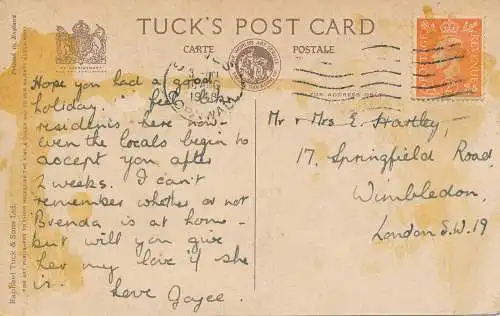 TUCK'S POST CARD
CARTE POSTALE
FOR ADDRESS ONLY
POSTAGE REVENUE
Printed in England
Raphael Tuck & Sons Ltd.
Hope you had a good
holiday. feel like
residents here now-
even the locals begin to
accept you after
2 weeks. I can't
remember whether or not
Brenda is at home-
but will you give
her my love if she
is. Love Joyce.
Mr & Mrs E. Hartley,
17, Springfield Road,
Wimbledon,
London S.W.19